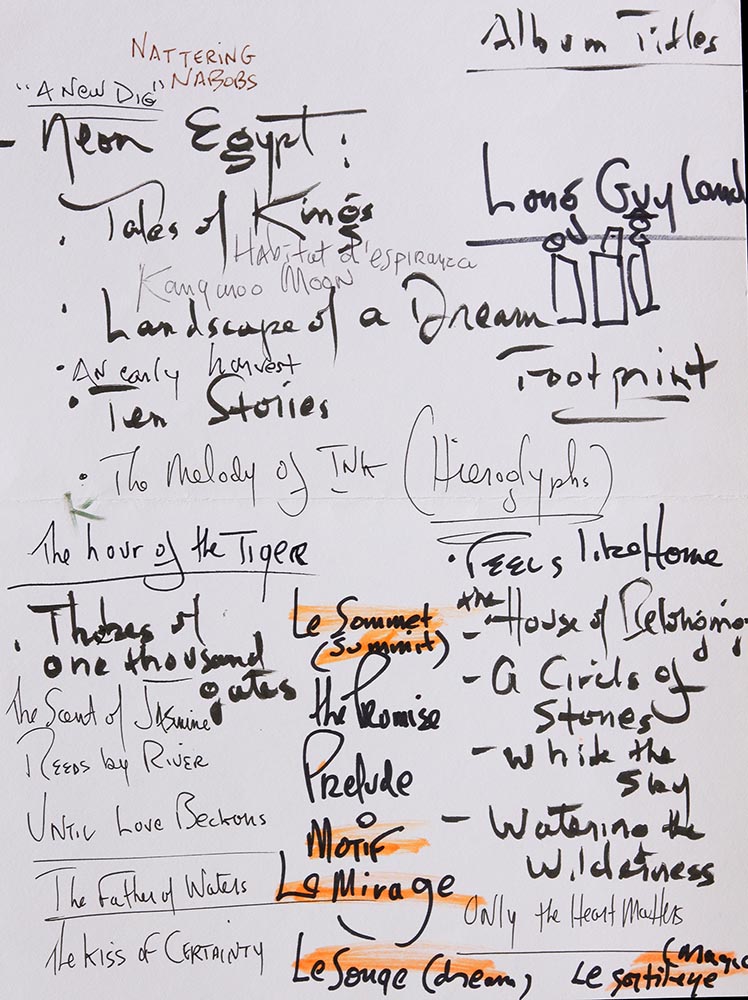 Album Titles
NATTERING
NABOBS
"A New Dig"
- Neon Egypt:
Long Guy Land
. Tales of Kings
Habitat d'espiranza
Kangaroo Moon
. Landscape of a Dream
Footprint
. An early harvest
. Ten Stories
. The Melody of INK (Hieroglyphs)
K
The hour of the Tiger
. Thebes of
one thousand
gates
The Scent of Jasmine
Reeds by River
Until Love Beckons
The Father of Waters
The Kiss of Certainty
Le Sommet
(Summit)
the Promise
Prelude
Motif
Le Mirage
Le Songe (dream)
. Feels like Home
- the House of
- A Circle of
Stones
- While the
Sky
- Watering the
Wilderness
Only the Heart Matters
(Magic
Le sortilege